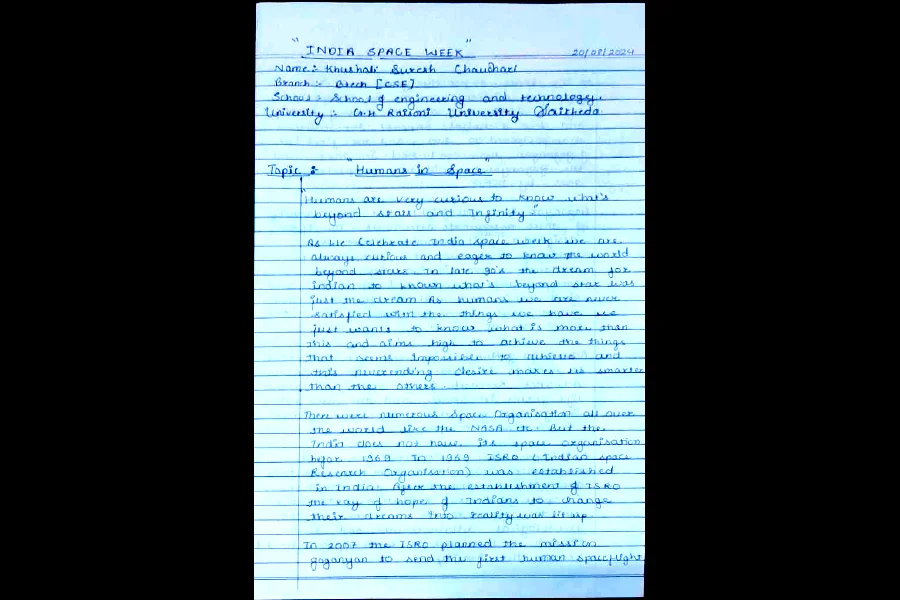 "INDIA SPACE WEEK"
20/08/2024
Name :- Khushali Suresh Chaudhari
Branch :- Btech [CSE]
School :- School of engineering and technology.
University :- G.H Raisoni University Saikheda
Topic :- "Humans in Space"
"Humans are very curious to know what's
beyond stars and Infinity"
As we Celebrate India space week we are
always curious and eager to know the world
beyond stars. In late 90's the dream for
indian to known what's beyond star was
just the dream As humans we are never
satisfied with the things we have we
just wants to know what is more than
this and aims high to achieve the things
that seems Impossible to achieve and
this neverending desire makes us smarter
than the others.
There were numerous Space Organisation all over
the world like the NASA etc. But the
India does not have its space organisation
befor 1969. In 1969 ISRO (Indian space
Research Organisation) was established
in India. After the establishment of ISRO
the ray of hope of Indians to change
their dreams into reality was lit up.
In 2007 the ISRO planned the mission
gaganyan to send the first human spaceflight